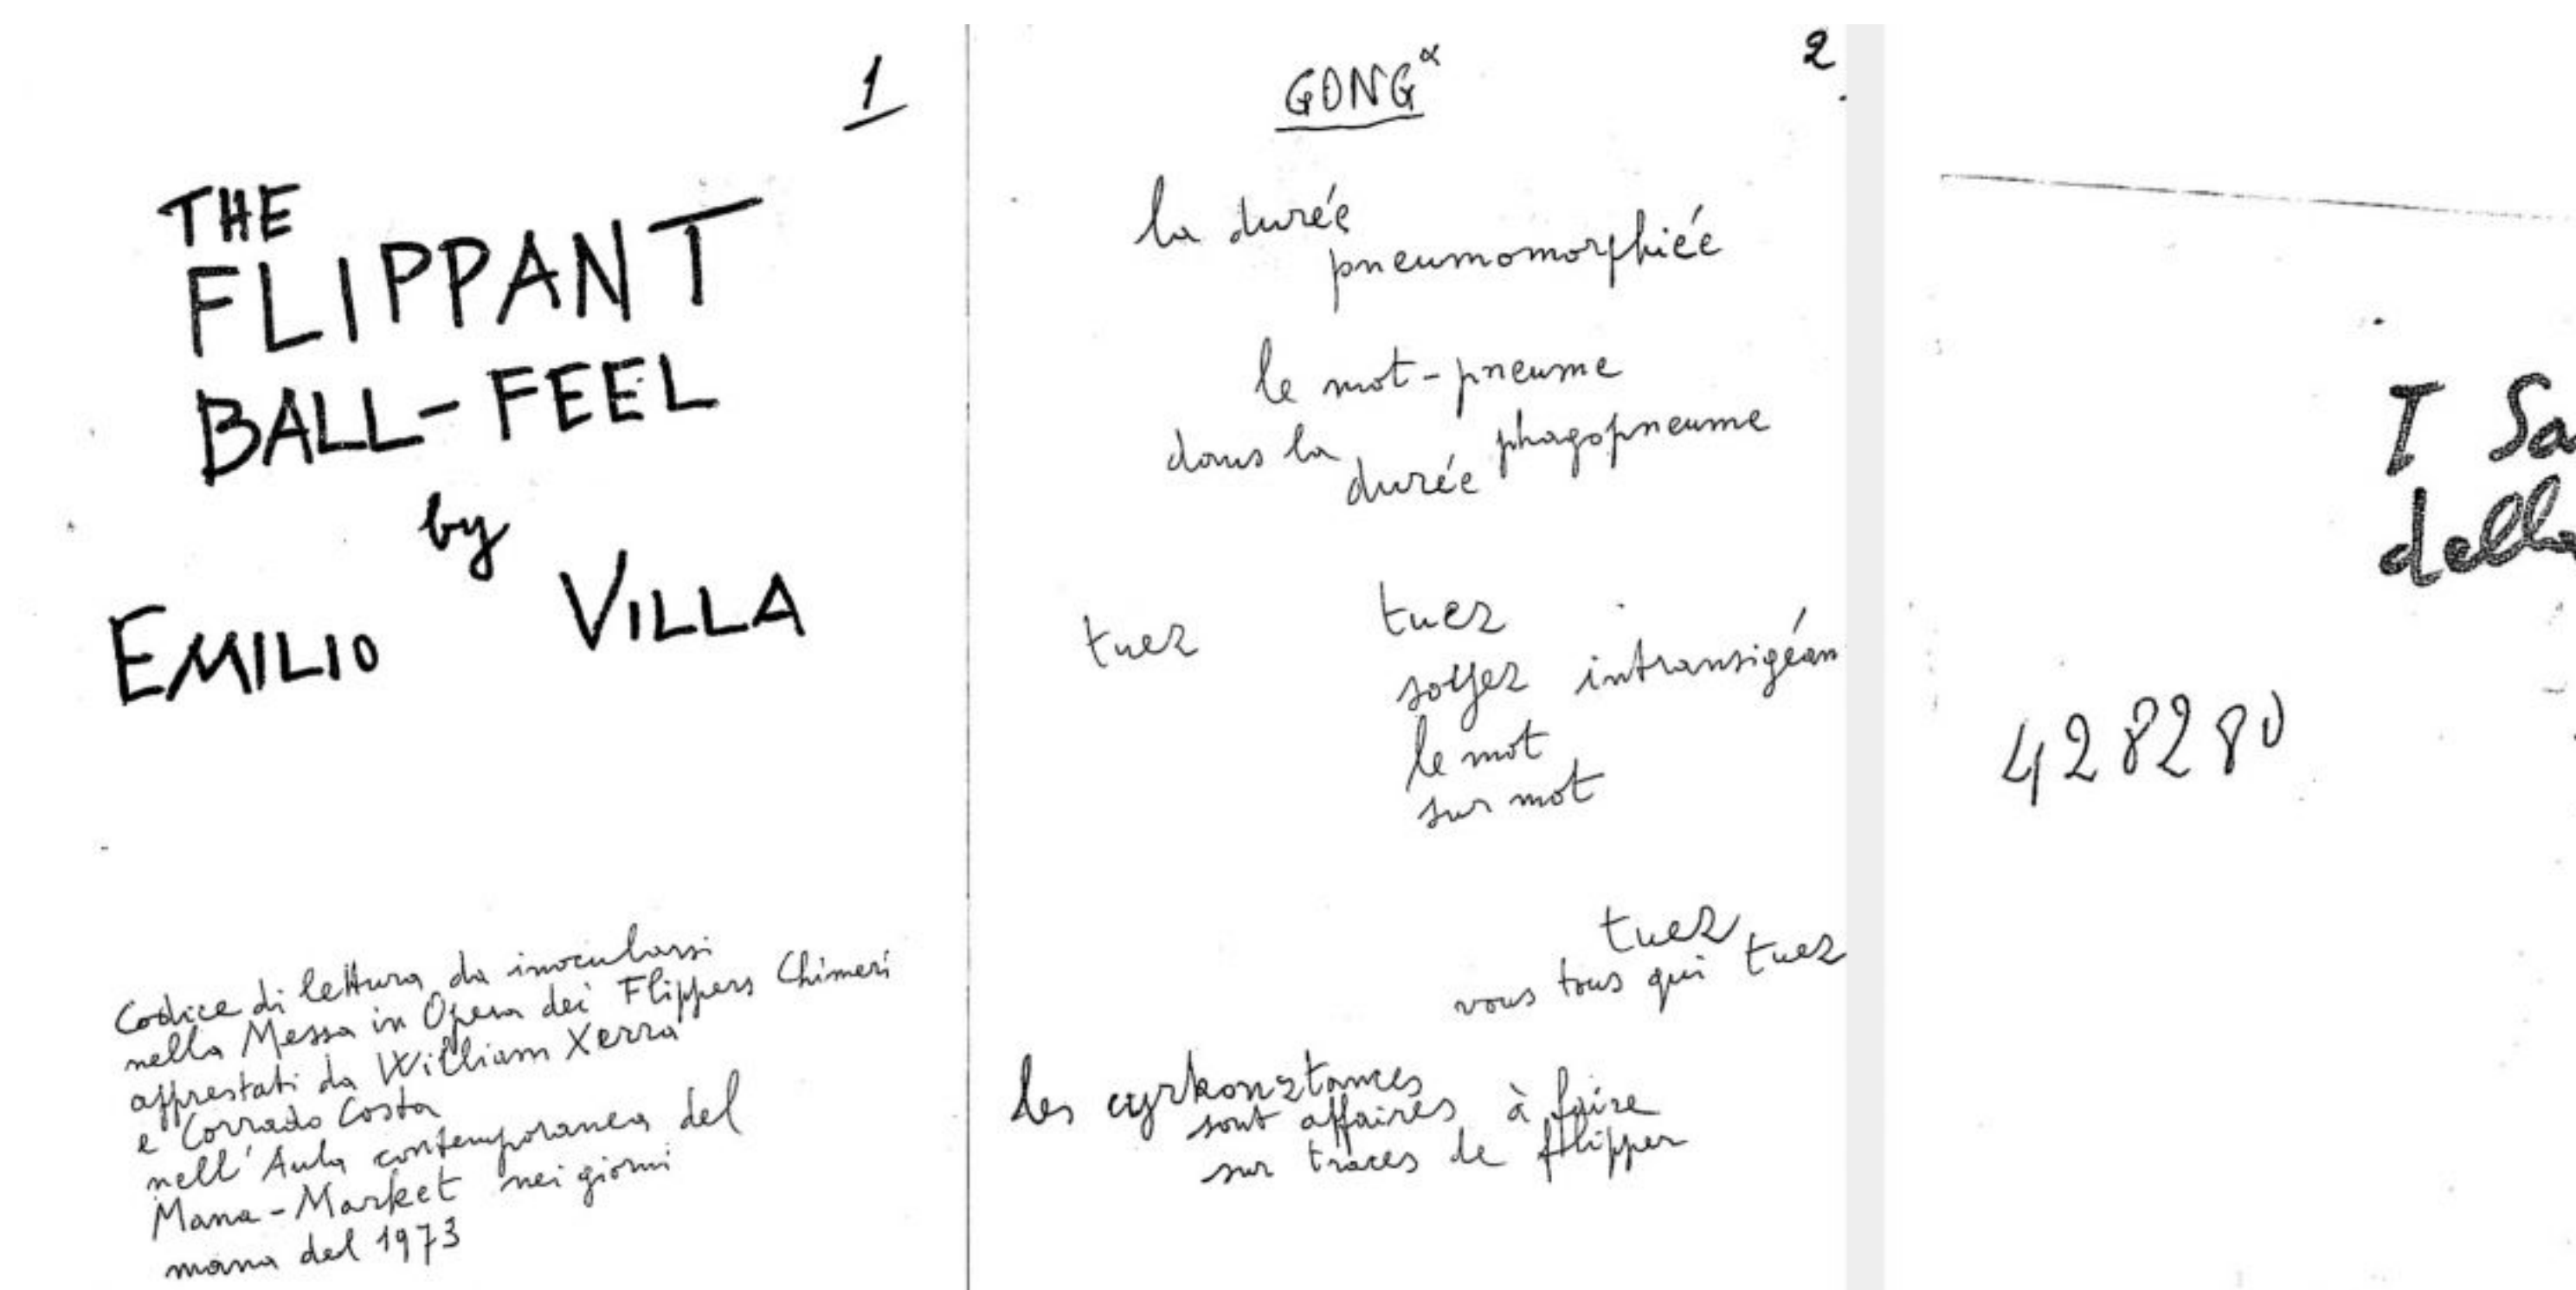 1
THE
FLIPPANT
BALL-FEEL
by
EMILIO VILLA
Codice di lettura da inocularsi
nella Messa in Opera dei Flippers Chimeri
apprestati da William Xerra
e Corrado Costa
nell'Aula contemporanea del
Mana-Market nei giorni
mana del 1973
2
GONG α
la durée
pneumomorphiée
le mot-pneume
dans la durée phagopneume
tuez tuez
soyez intransigéan
le mot
sur mot
tuez
vous tous qui tuez
les cyrkonztances
sont affaires à faire
sur traces de flipper
I Sa
della
428280